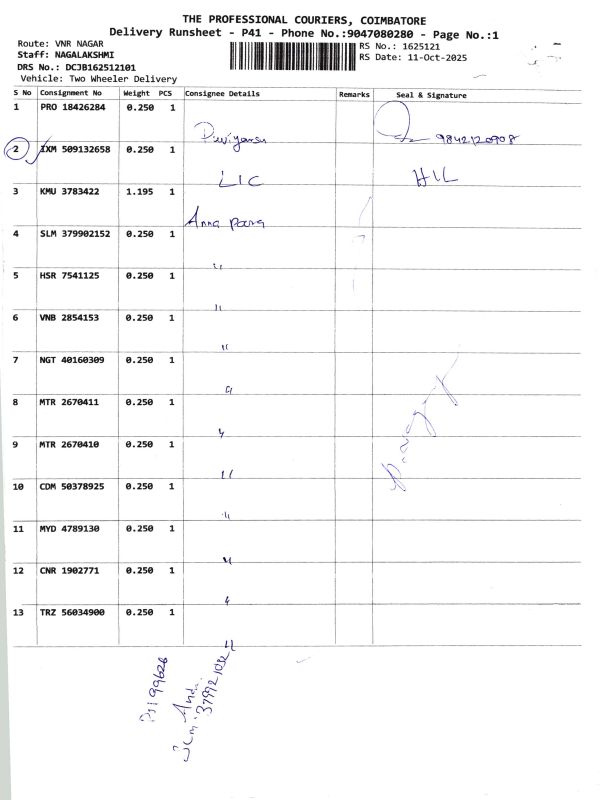 THE PROFESSIONAL COURIERS, COIMBATORE
Delivery Runsheet - P41 - Phone No.:9047080280 - Page No.:1
Route: VNR NAGAR
Staff: NAGALAKSHMI
DRS No.: DCJB162512101
Vehicle: Two Wheeler Delivery
RS No.: 1625121
RS Date: 11-Oct-2025
S No Consignment No Weight PCS Consignee Details Remarks Seal & Signature
1 PRO 18426284 0.250 1
9842120908
2 IXM 509132658 0.250 1
LIC HIL
3 KMU 3783422 1.195 1
Anna
4 SLM 379902152 0.250 1
"
5 HSR 7541125 0.250 1
"
6 VNB 2854153 0.250 1
"
7 NGT 40160309 0.250 1
"
8 MTR 2670411 0.250 1
"
9 MTR 2670410 0.250 1
"
10 CDM 50378925 0.250 1
"
11 MYD 4789130 0.250 1
"
12 CNR 1902771 0.250 1
"
13 TRZ 56034900 0.250 1
"